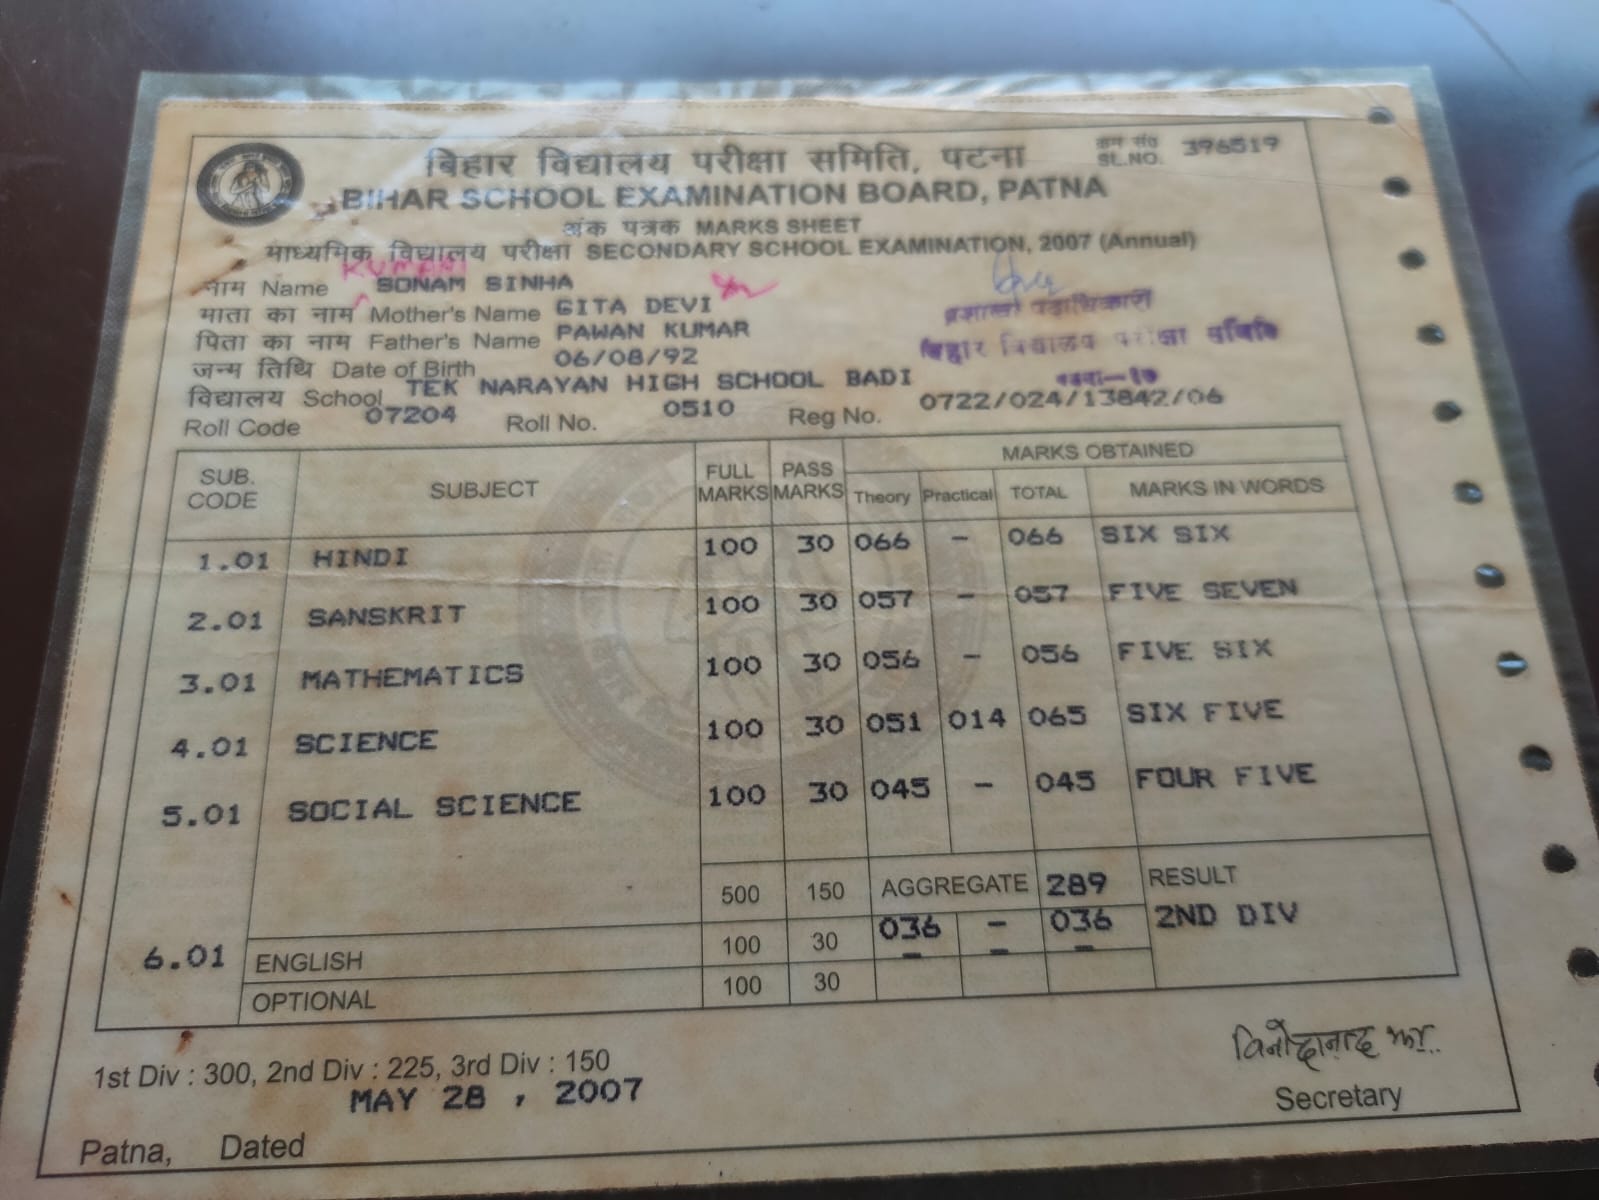 बिहार विद्यालय परीक्षा समिति, पटना
क्रम सं०
SL.NO. 396519
BIHAR SCHOOL EXAMINATION BOARD, PATNA
अंक पत्रक MARKS SHEET
माध्यमिक विद्यालय परीक्षा SECONDARY SCHOOL EXAMINATION, 2007 (Annual)
KUMARI
नाम Name SONAM SINHA
माता का नाम Mother's Name GITA DEVI
पिता का नाम Father's Name PAWAN KUMAR
जन्म तिथि Date of Birth 06/08/92
प्रशाखा पदाधिकारी
बिहार विद्यालय परीक्षा समिति
पटना-१७
विद्यालय School TEK NARAYAN HIGH SCHOOL BADI
Roll Code 07204 Roll No. 0510 Reg No. 0722/024/13842/06
SUB. CODE SUBJECT FULL MARKS PASS MARKS MARKS OBTAINED
Theory Practical TOTAL MARKS IN WORDS
1.01 HINDI 100 30 066 - 066 SIX SIX
2.01 SANSKRIT 100 30 057 - 057 FIVE SEVEN
3.01 MATHEMATICS 100 30 056 - 056 FIVE SIX
4.01 SCIENCE 100 30 051 014 065 SIX FIVE
5.01 SOCIAL SCIENCE 100 30 045 - 045 FOUR FIVE
500 150 AGGREGATE 289 RESULT
6.01 ENGLISH 100 30 036 - 036 2ND DIV
OPTIONAL 100 30 - - -
1st Div : 300, 2nd Div : 225, 3rd Div : 150
MAY 28 , 2007
Patna, Dated
विनोदानन्द झा
Secretary